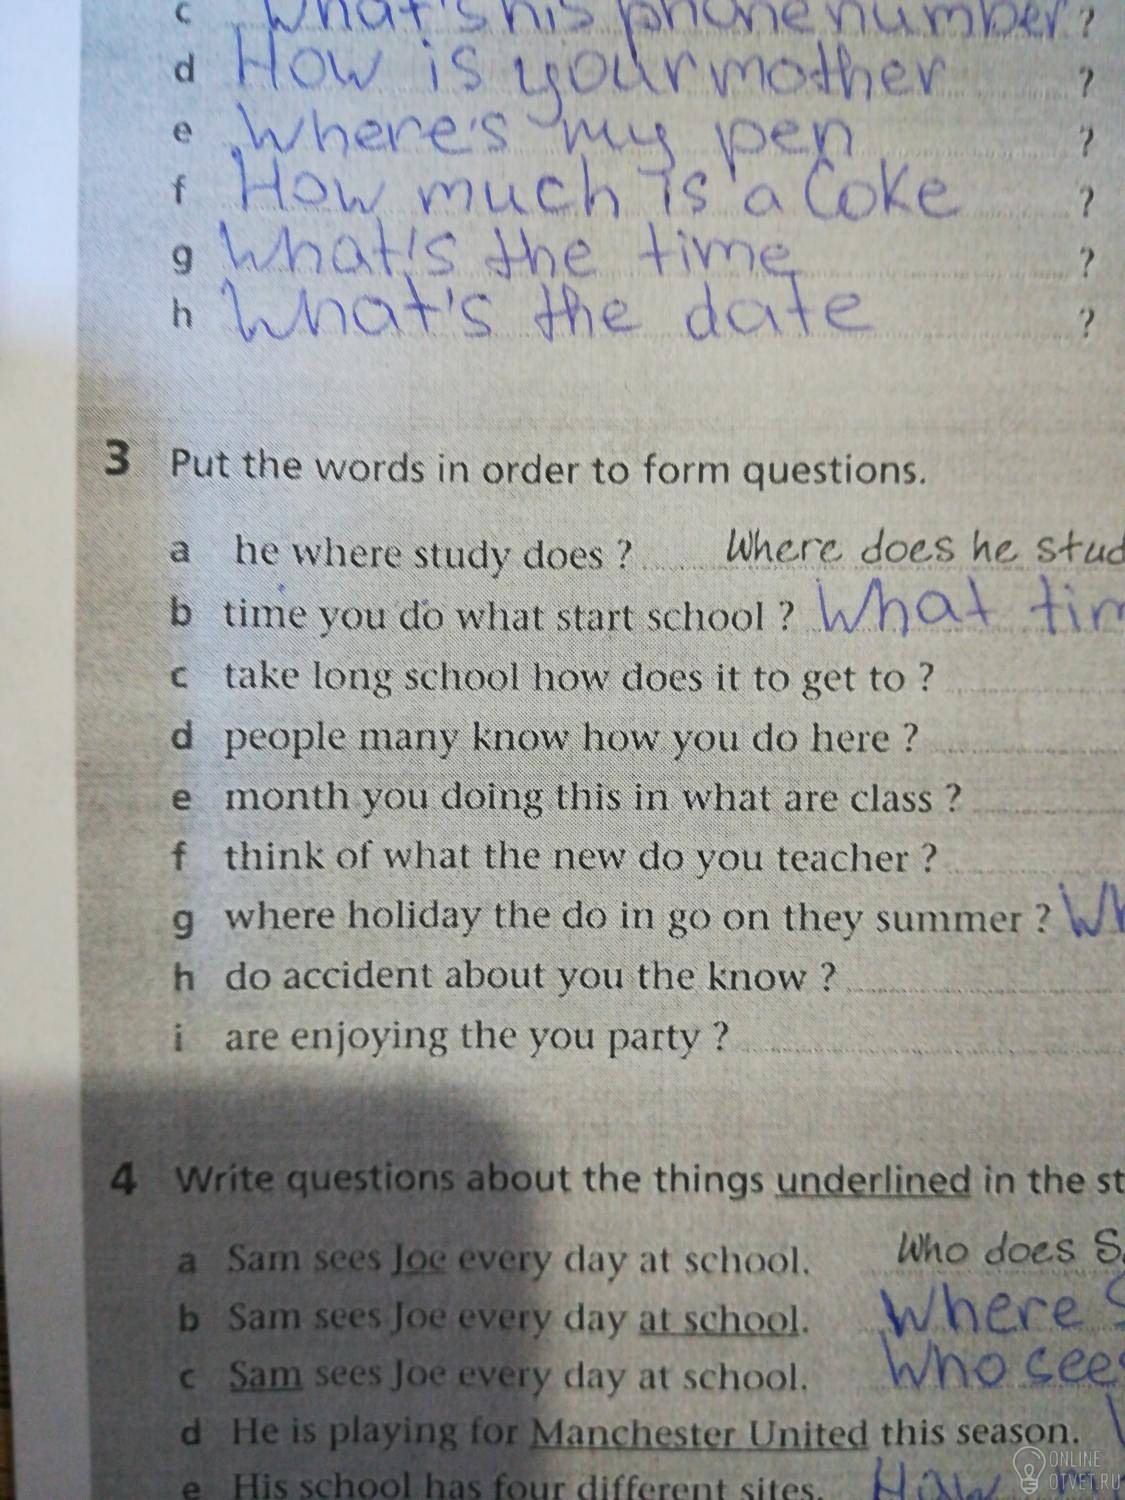 c What's his phone number ?
d How is your mother ?
e Where's my pen ?
f How much is a Coke ?
g What's the time ?
h What's the date ?
3 Put the words in order to form questions.
a he where study does ? Where does he stud
b time you do what start school ? What tim
c take long school how does it to get to ?
d people many know how you do here ?
e month you doing this in what are class ?
f think of what the new do you teacher ?
g where holiday the do in go on they summer ? Wh
h do accident about you the know ?
i are enjoying the you party ?
4 Write questions about the things underlined in the st
a Sam sees Joe every day at school. Who does S
b Sam sees Joe every day at school. Where S
c Sam sees Joe every day at school. Who sees
d He is playing for Manchester United this season.
e His school has four different sites. How
ONLINE
OTVET.RU